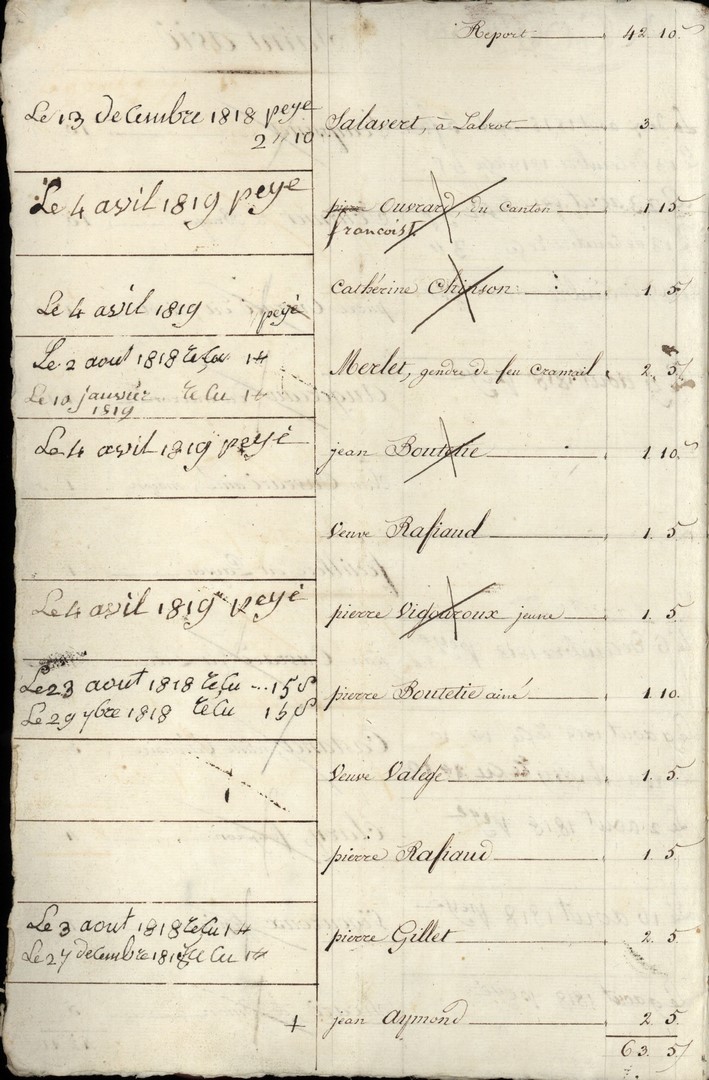 Report 42 10
Le 13 decembre 1818 peye
2 " 10
Salavert, à Labrot 3.
Le 4 avil 1819 peye
pierre Ouvrard, du Canton 1 15
francoist
Le 4 avil 1819 peyé
Cathérine Chinson 1 5
Le 2 aout 1818 recu 1 #
Le 10 janvier recu 1 #
1819
Merlet, gendre de feu Cramail 2 5
Le 4 avil 1819 peyé
jean Boutetie 1 10
Veuve Rafiaud 1 5
Le 4 avil 1819 peyé
pierre Vigouroux jeune 1 5
Le 23 aout 1818 recu 15 s
Le 29 ybre 1818 recu 15 s
pierre Boutetie ainé 1 10
Veuve Valege 1 5
pierre Rafiaud 1 5
Le 3 aout 1818 recu 1 #
Le 27 decembre 1818 recu 1 #
pierre Gillet 2 5
+
jean Aymond 2 5
63 5